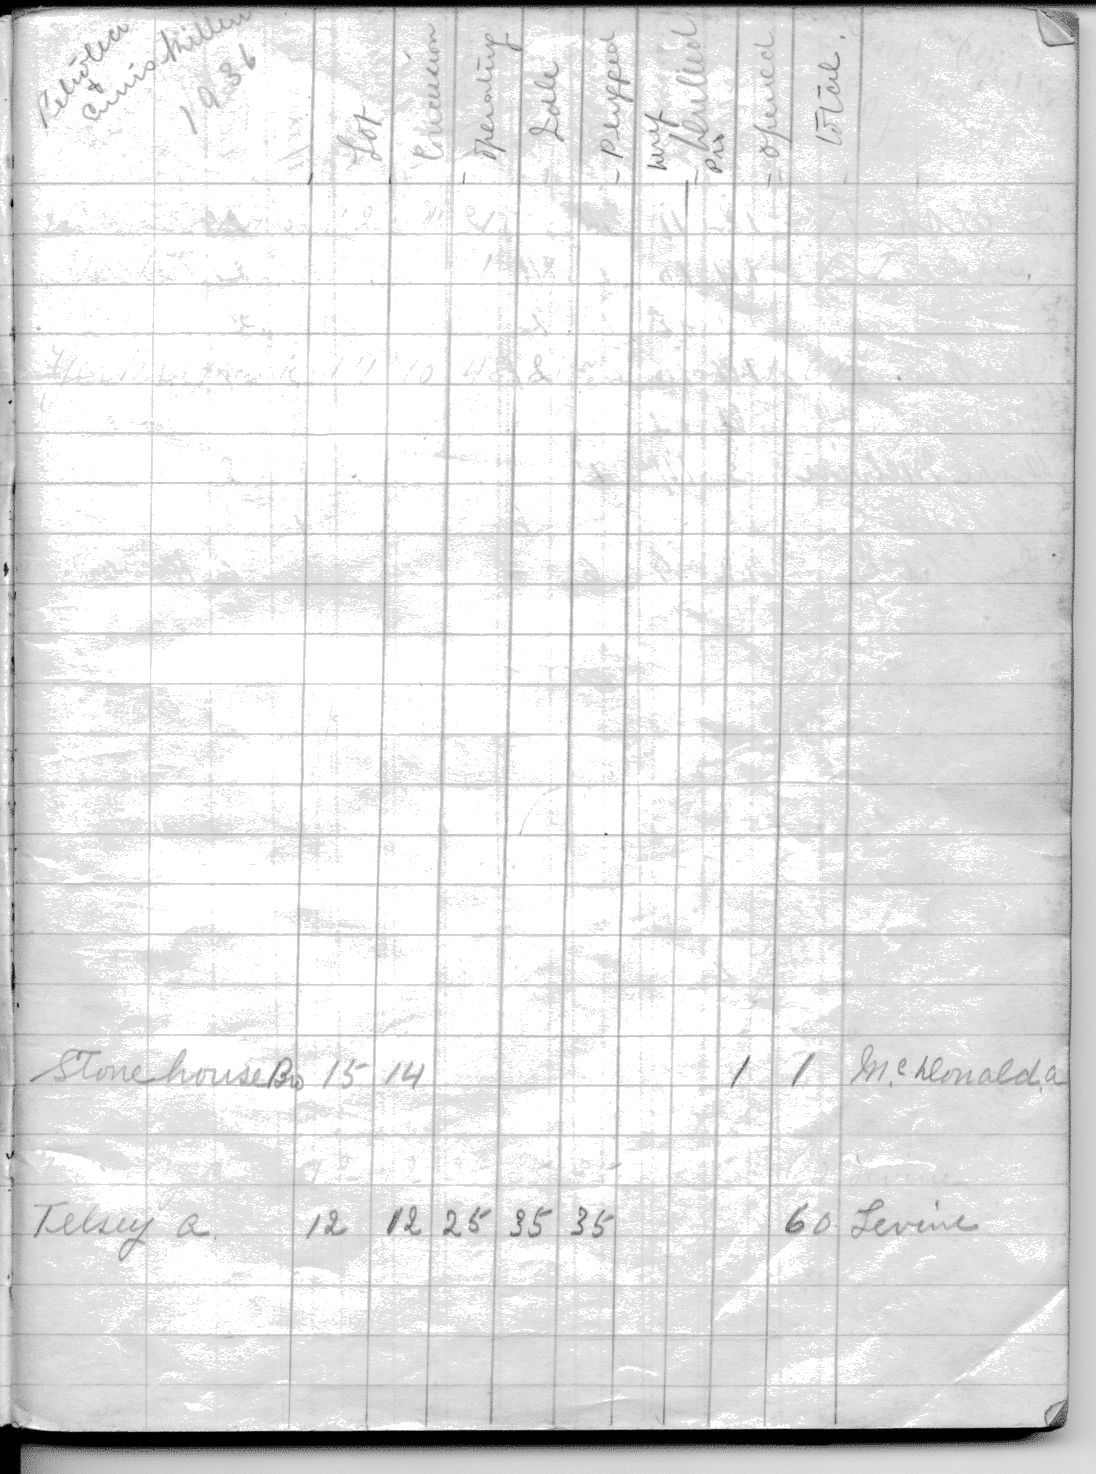 Petrolea
&
Enniskillen
1936
Lot
Concession
- operating
Idle
- Plugged
- Drilled
- opened
total.
Stonehouse Bro 15 14 1 1 McDonald. a
Kelsey a. 12 12 25 35 35 60 Levine